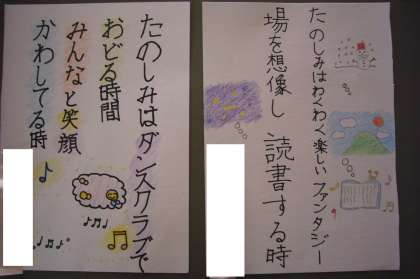 たのしみはダンスクラブで
おどる時間
みんなと笑顔
かわしてる時
たのしみはわくわく楽しいファンタジー
場を想像し 読書する時